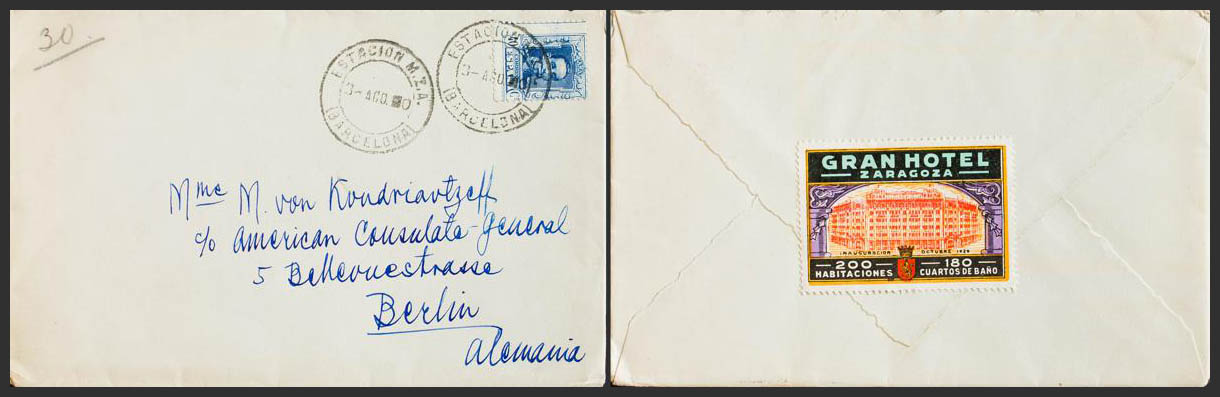 30.
ESTACION M.Z.A.
3-AGO. 30
(BARCELONA)
ESTACION
3-AGO. 30
(BARCELONA)
Mme M. von Kondriavtzeff
c/o American Consulate-General
5 Bellevuestrasse
Berlin
Alemania
GRAN HOTEL
ZARAGOZA
INAUGURACION OCTUBRE 1929
200 180
HABITACIONES CUARTOS DE BAÑO